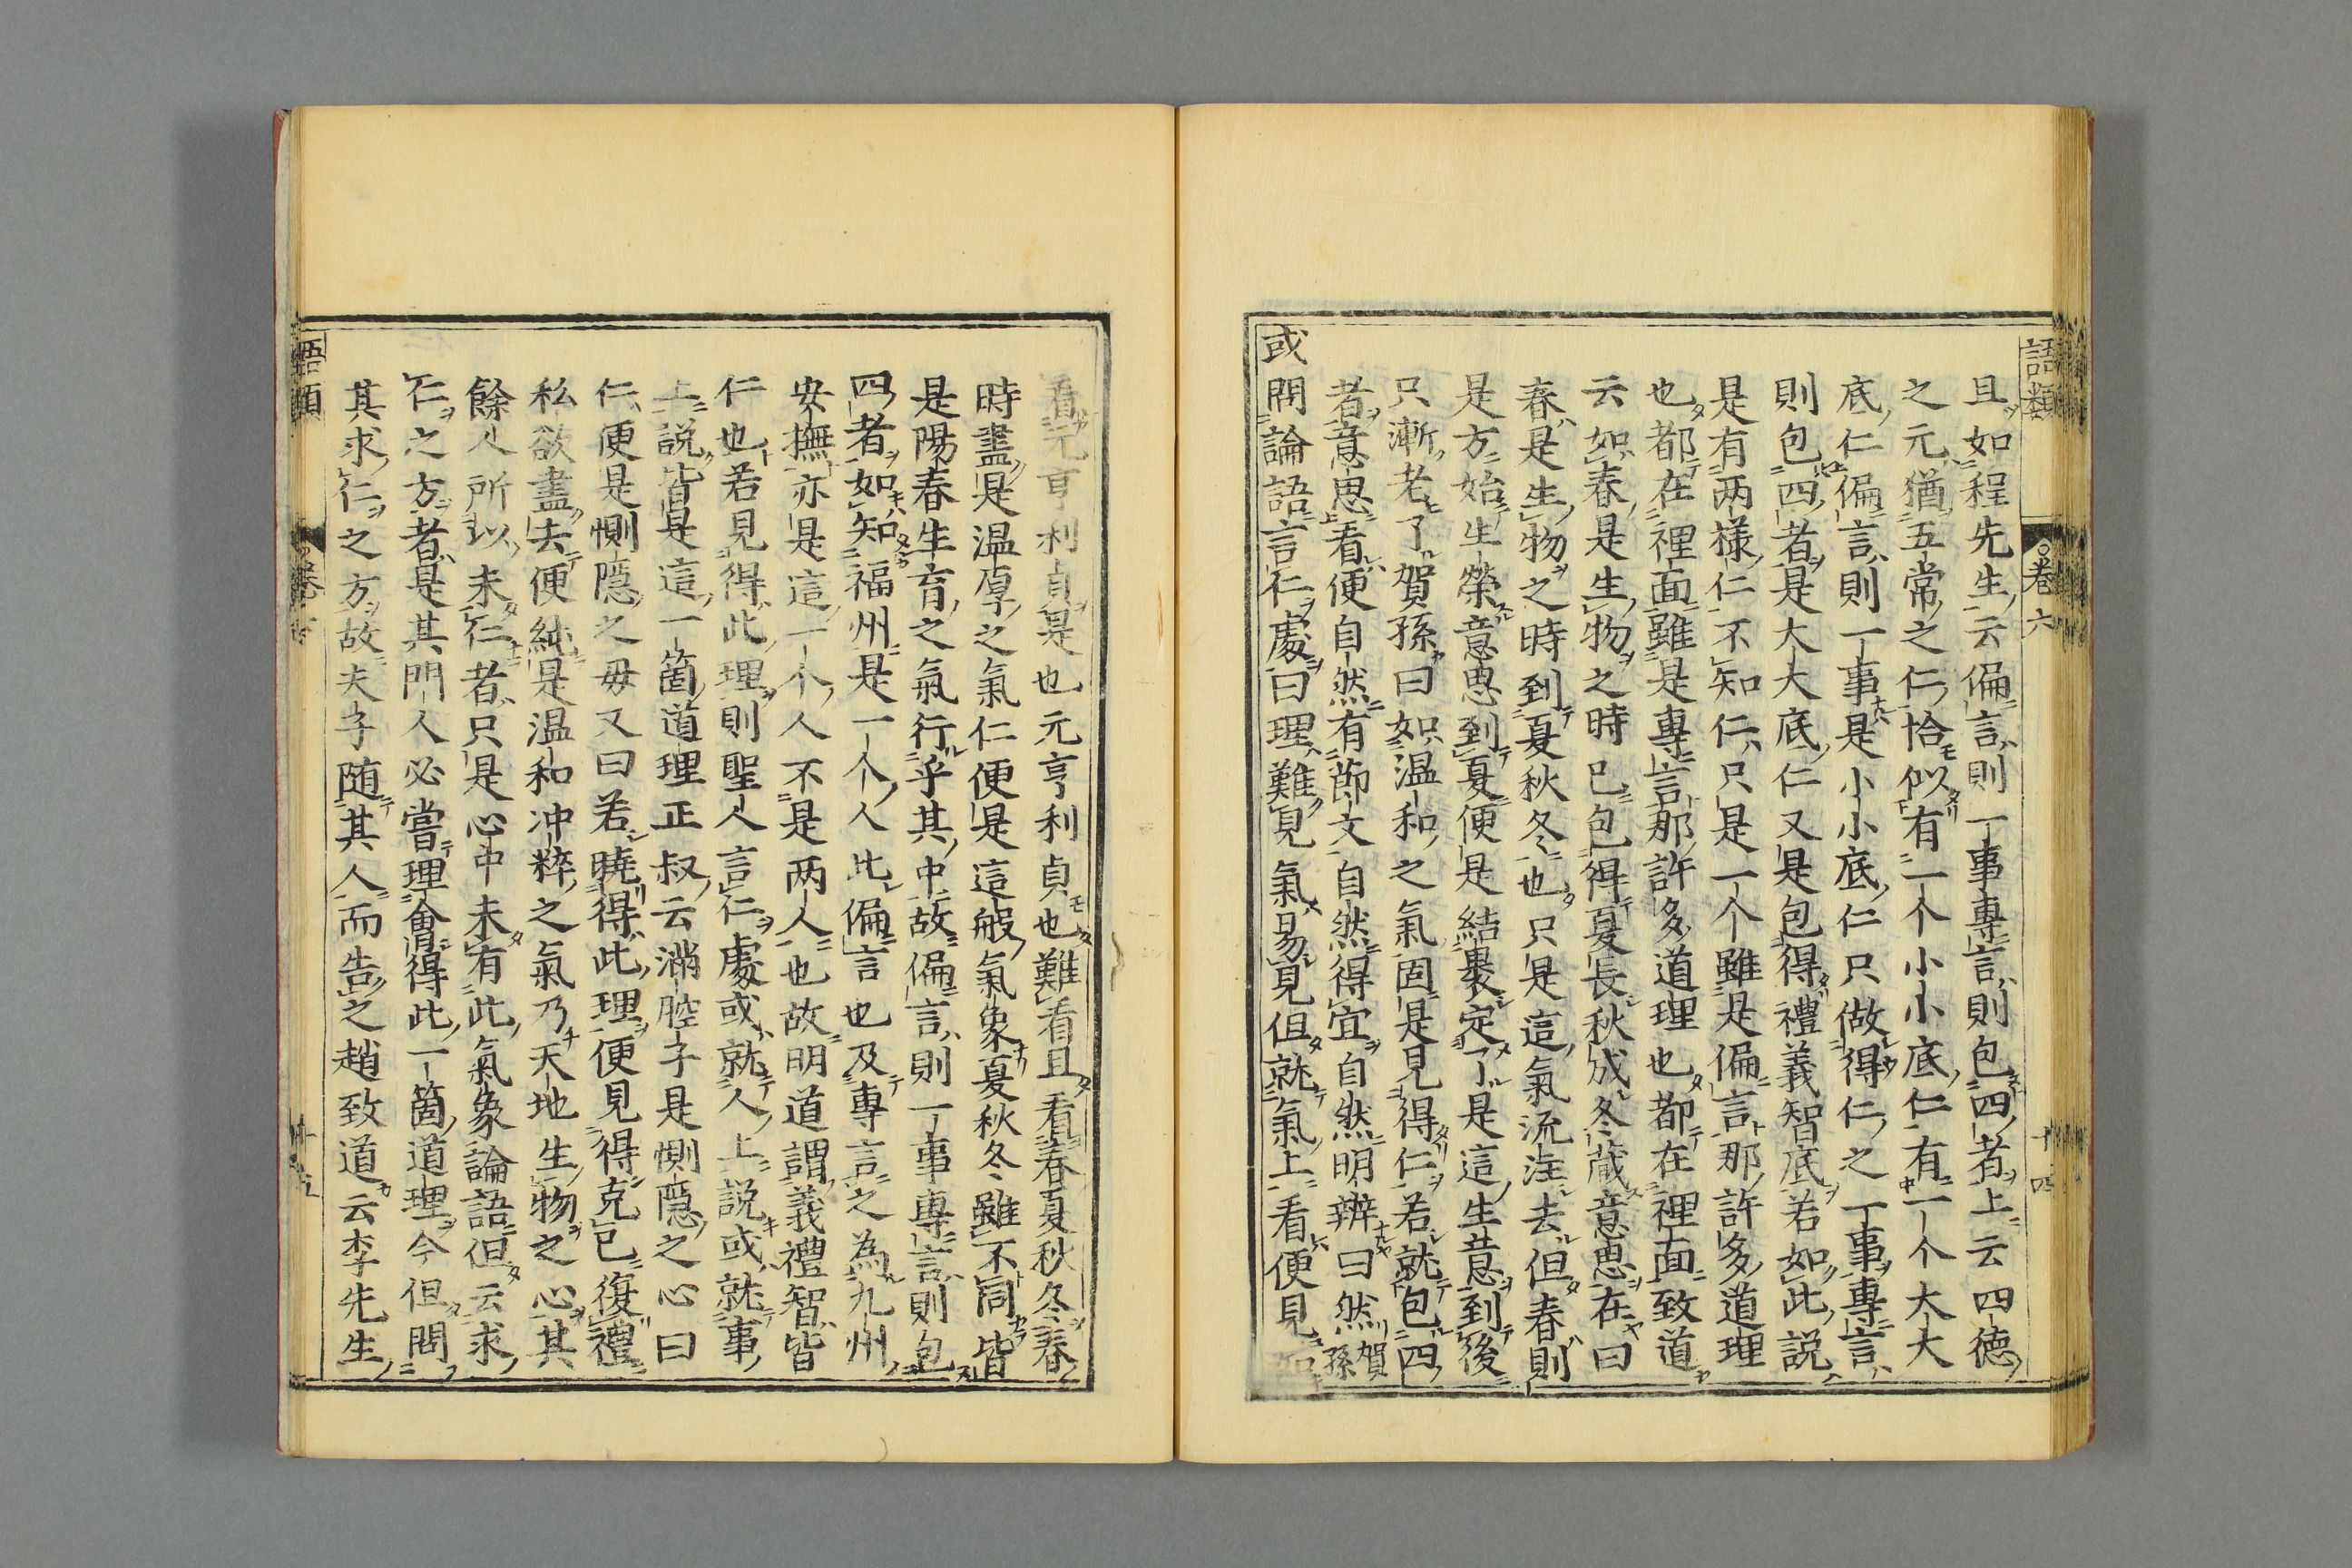 語類
卷六
十四
且如程先生云偏言則一事專言則包四者上云四德
之元猶五常之仁恰似有一个小小底仁有一个大大
底仁偏言則一事是小小底仁只做得仁之一事專言
則包四者是大大底仁又是包得禮義智底若如此説
是有兩樣仁不知仁只是一个雖是偏言那許多道理
也都在裡面雖是專言那許多道理也都在裡面致道
云如春是生物之時已包得夏長秋成冬蔵意思在曰
春是生物之時到夏秋冬也只是這氣流注去但春則
是方始生榮意思到夏便是結裹定了是這生意到後
只漸老了賀孫曰如温和之氣固是見得仁若就包四
者意思看便自然有節文自然得宜自然明辨曰然賀孫
或問論語言仁處曰理難見氣易見但就氣上看便見
看元亨利貞是也元亨利貞也難看且看春夏秋冬春
時盡是温厚之氣仁便是這般氣象夏秋冬雖不同皆
是陽春生育之氣行乎其中故偏言則一事專言則包
四者如知福州是一个人此偏言也及專言之為九州
安撫亦是這一个人不是兩人也故明道謂義禮智皆
仁也若見得此理則聖人言仁處或就人上説或就事
上説皆是這一箇道理正叔云滿腔子是惻隱之心曰
仁便是惻隱之母又曰若曉得此理便見得克己復禮
私欲盡去便純是温和冲粹之氣乃天地生物之心其
餘人所以未仁者只是心中未有此氣象論語但云求
仁之方者是其門人必嘗理會得此一箇道理今但問
其求仁之方故夫子随其人而告之趙致道云李先生
語類
卷六
十五